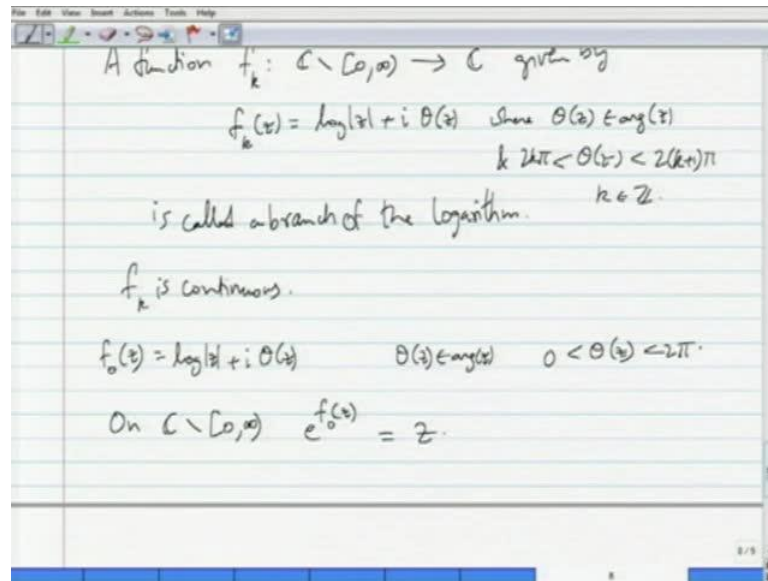 File Edit View Insert Actions Tools Help
A function f_k : ℂ \ [0,∞) → ℂ given by
f_k(z) = log|z| + i θ(z) where θ(z) ∈ arg(z)
& 2kπ < θ(z) < 2(k+1)π
k ∈ ℤ.
is called a branch of the logarithm.
f_k is continuous.
f_0(z) = log|z| + i θ(z) θ(z) ∈ arg(z) 0 < θ(z) < 2π.
On ℂ \ [0,∞) e^{f_0(z)} = z.
8/9
8